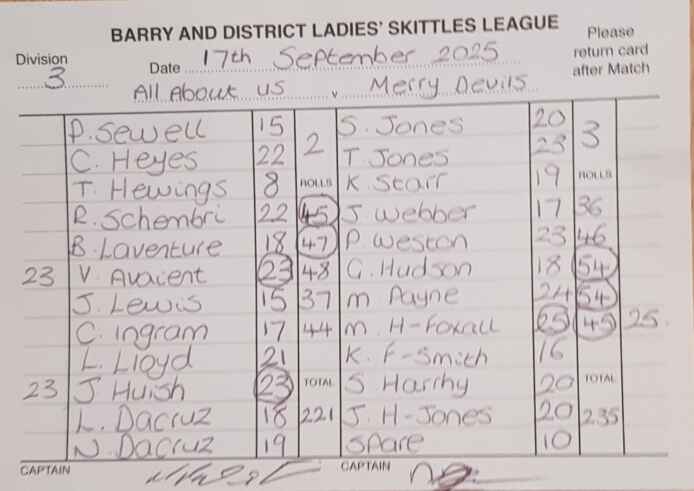 BARRY AND DISTRICT LADIES' SKITTLES LEAGUE
Please return card after Match
Division 3
Date 17th September 2025
All About us v Merry Devils
P. Sewell 15 2 S. Jones 20 3
C. Heyes 22 T. Jones 23
T. Hewings 8 ROLLS K Starr 19 ROLLS
R. Schembri 22 45 J Webber 17 36
B. Laventure 18 47 P. Weston 23 46
23 V. Avaient 23 48 G. Hudson 18 54
J. Lewis 15 37 M Payne 24 54
C. Ingram 17 44 M. H-Foxall 25 45 25.
L. Lloyd 21 K. F-Smith 16
23 J Huish 23 TOTAL S Harrhy 20 TOTAL
L. Dacruz 18 221 J. H-Jones 20 235
N. Dacruz 19 Spare 10
CAPTAIN CAPTAIN